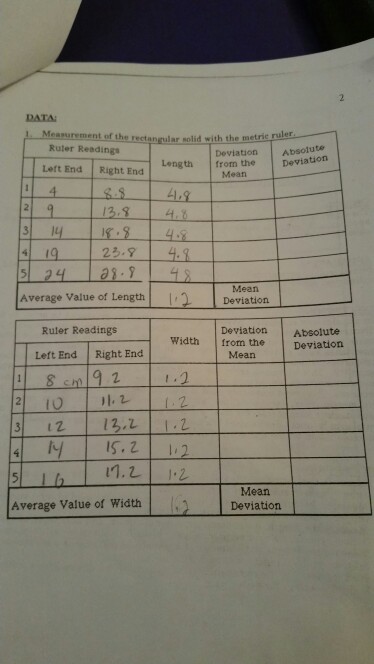 2
DATA:
1. Measurement of the rectangular solid with the metric ruler.
Ruler Readings Length Deviation from the Mean Absolute Deviation
Left End Right End
1 4 8.8 4.8
2 9 13.8 4.8
3 14 18.8 4.8
4 19 23.8 4.8
5 24 28.8 48
Average Value of Length 1.2 Mean Deviation
Ruler Readings Width Deviation from the Mean Absolute Deviation
Left End Right End
1 8 cm 9.2 1.2
2 10 11.2 1.2
3 12 13.2 1.2
4 14 15.2 1.2
5 16 17.2 1.2
Average Value of Width 1.2 Mean Deviation